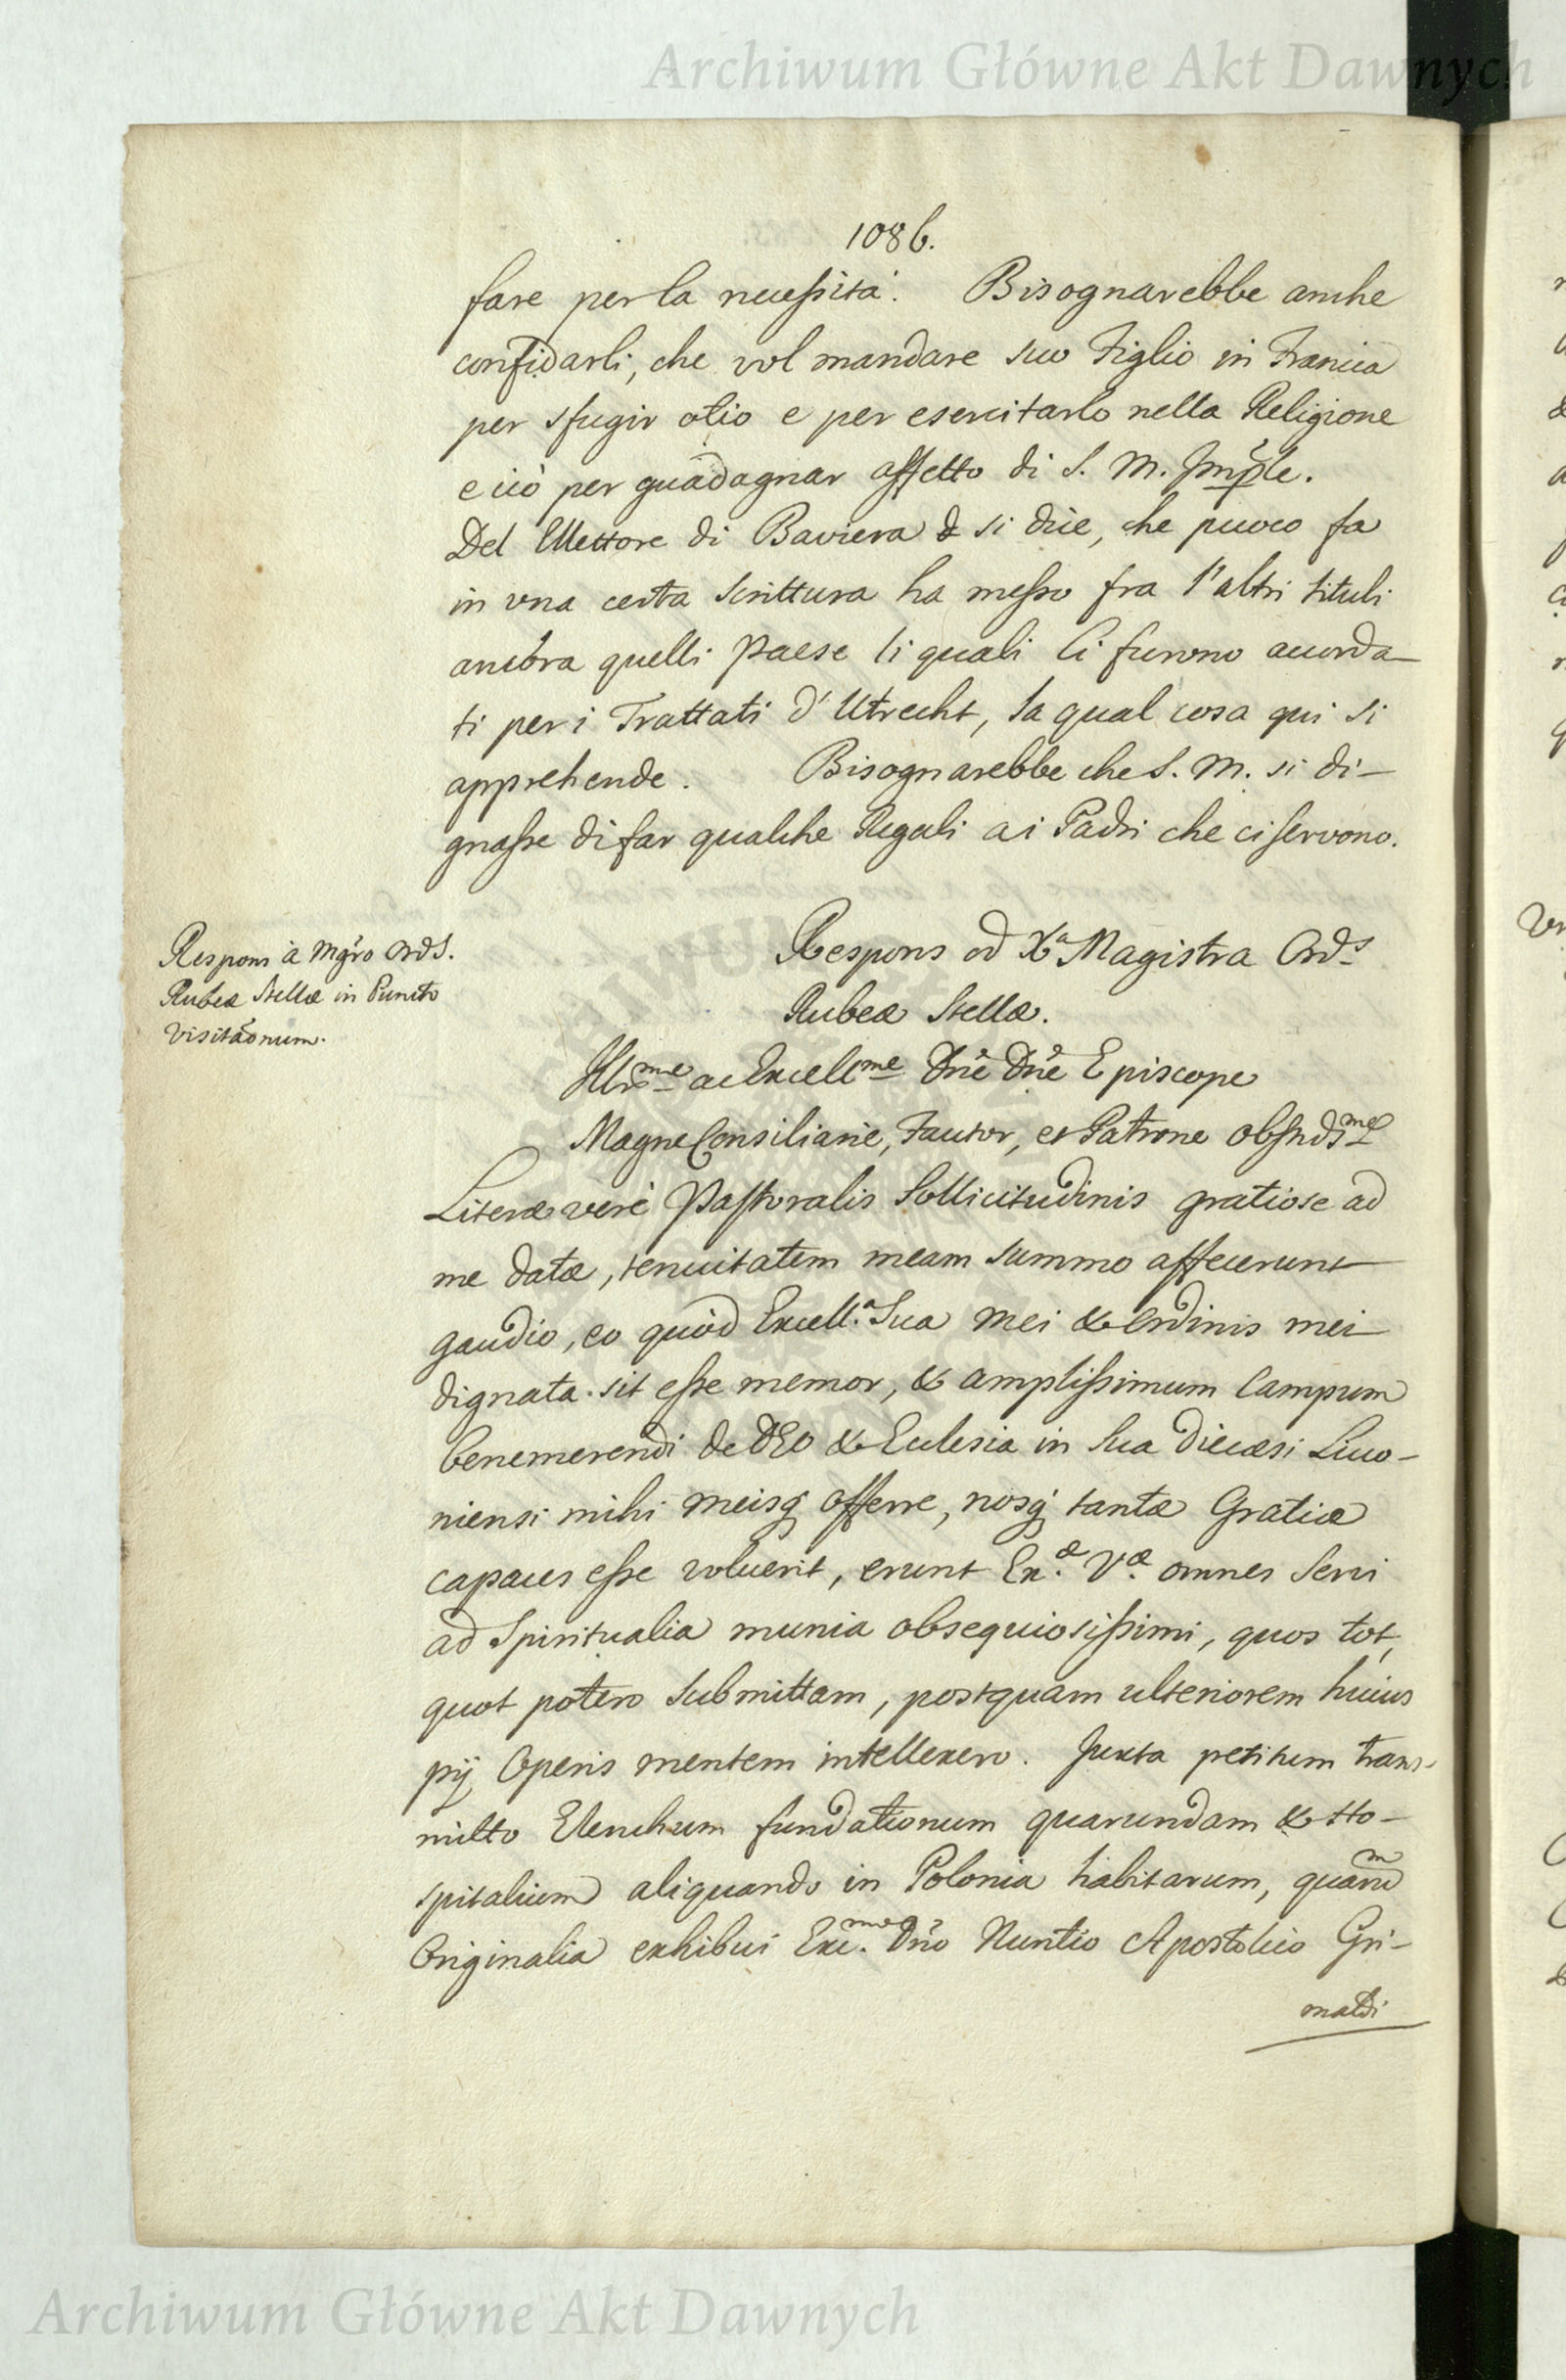 Archiwum Główne Akt Dawnych
1086.
fare per la necessità. Bisognarebbe anche
confidarli, che vol mandare suo Figlio in Francia
per sfugir otio e per esercitarlo nella Religione
e ciò per guadagnar affetto di S. M. Imp̃le.
Del Elettore di Baviera & si dice, che puoco fa
in vna certa scrittura ha messo fra l'altri tituli
ancora quelli paese li quali li furono accorda-
ti per i Trattati d'Utrecht, la qual cosa qui si
apprehende. Bisognarebbe che S. M. si di-
gnasse di far qualche Regali ai Padri che ci servono.
Respons à Mgr̃o Ord̃s.
Rubeæ Stellæ in Puncto
visitãonum.
Respons od Xa Magistra Ords
Rubeæ Stellæ.
Illr̃me ac Excellme Dñe Dñe Episcope
Magne Consiliarie, Fautor, et Patrone obsñdsme
Literæ verè Pastoralis Sollicitudinis gratiose ad
me datæ, tenuitatem meam summo affecerunt
gaudio, eo quòd Excell.a Sua mei & Ordinis mei
dignata sit esse memor, & amplissimum Campum
benemerendi de DEO & Eclesia in sua Diecæsi Livo-
niensi mihi meisq́ offerre, nosq́ tantæ Gratiæ
capaces esse voluerit, erunt Ex.æ V.æ omnes Servi
ad Spiritualia munia obsequiosissimi, quos tot,
quot potero submittam, postquam ulteriorem huius
pij Operis mentem intellexero. Juxta petitum trans-
mitto Elenchum fundationum quarundam & Ho-
spitalium aliquando in Polonia habitarum, quarum
Originalia exhibui Exc.mo Dño Nuntio Apostolico Gri-
maldi
Archiwum Główne Akt Dawnych